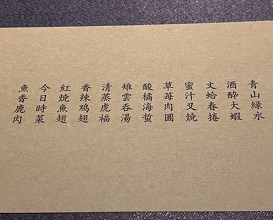 青山綠水
酒醉大蝦
文蛤春捲
蜜汁叉燒
草莓肉圓
酸橘海蜇
雉雲吞湯
清蒸虎福
香辣鸡翅
紅燒魚翅
今日時菜
魚香鹿肉